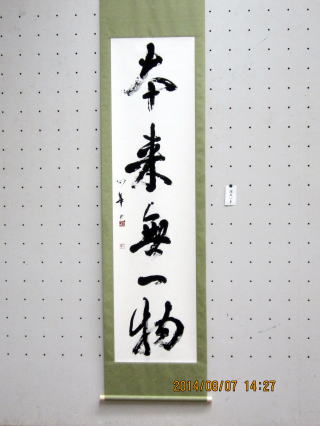 本来無一物
2014/08/07 14:27